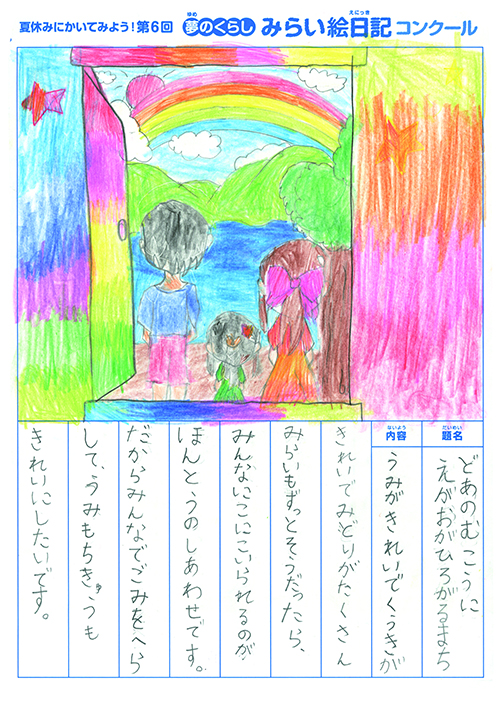 夏休みにかいてみよう!第6回 夢のくらし みらい絵日記コンクール
題名
どあのむこうに
えがおがひろがるまち
内容
うみがきれいでくうきが
きれいでみどりがたくさん
みらいもずっとそうだったら、
みんなにこにこいられるのが
ほんとうのしあわせです。
だからみんなでごみをへら
して、うみもちきゅうも
きれいにしたいです。